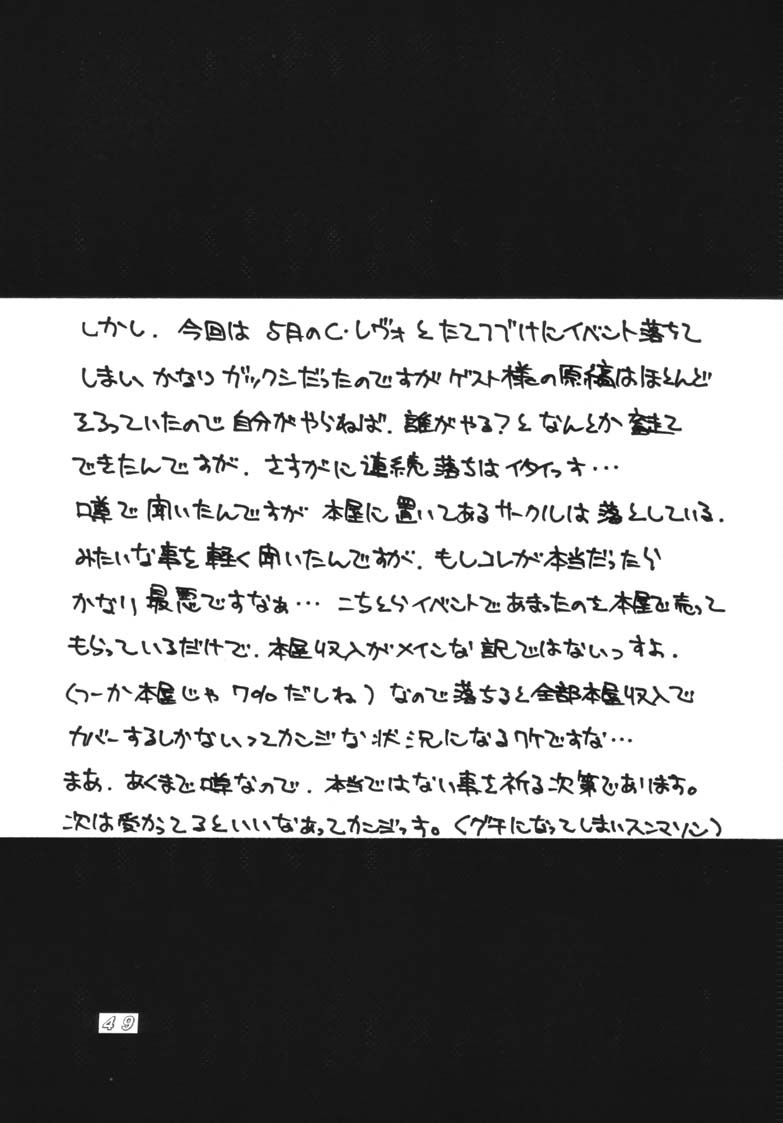 しかし、今回は5月のC・レヴォとたてつづけにイベント落ちて
しまい、かなりガックシだったのですがゲスト様の原稿はほとんど
そろっていたので自分がやらねば、誰がやる?となんとか奮起て
できたんですが、さすがに連続落ちはイタイっす…
噂で聞いたんですが本屋に置いてあるサークルは落としている。
みたいな事を軽く聞いたんですが、もしコレが本当だったら
かなり最悪ですなぁ…こちとらイベントであまったのを本屋で売って
もらっているだけで、本屋収入がメインな訳ではないっすよ。
(つーか本屋じゃ7%だしね)なので落ちると全部本屋収入で
カバーするしかないってカンジな状況になるワケですな…
まあ、あくまで噂なので、本当ではない事を祈る次第であります。
次は受かってるといいなあってカンジっす。(グチになってしまいスンマソン)
49